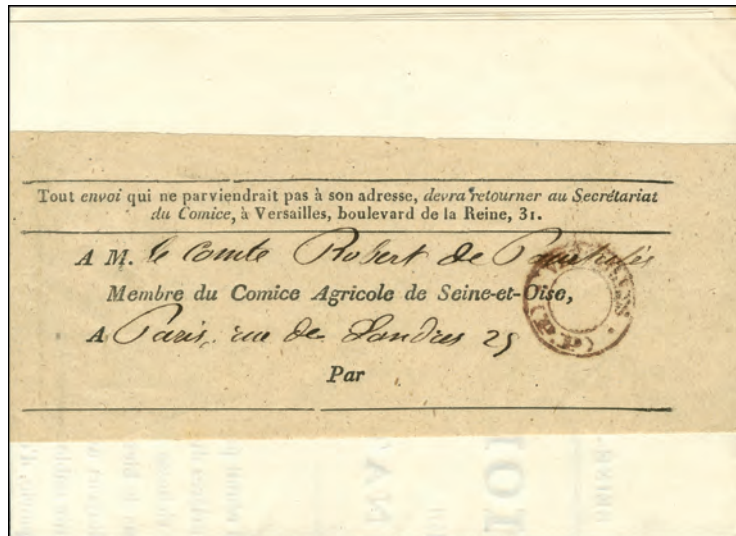 Tout envoi qui ne parviendrait pas à son adresse, devra retourner au Secrétariat
du Comice, à Versailles, boulevard de la Reine, 31.
A M. le Comte Robert de Pourtalès
Membre du Comice Agricole de Seine-et-Oise,
A Paris, rue de Londres 25
Par
(P.P.)